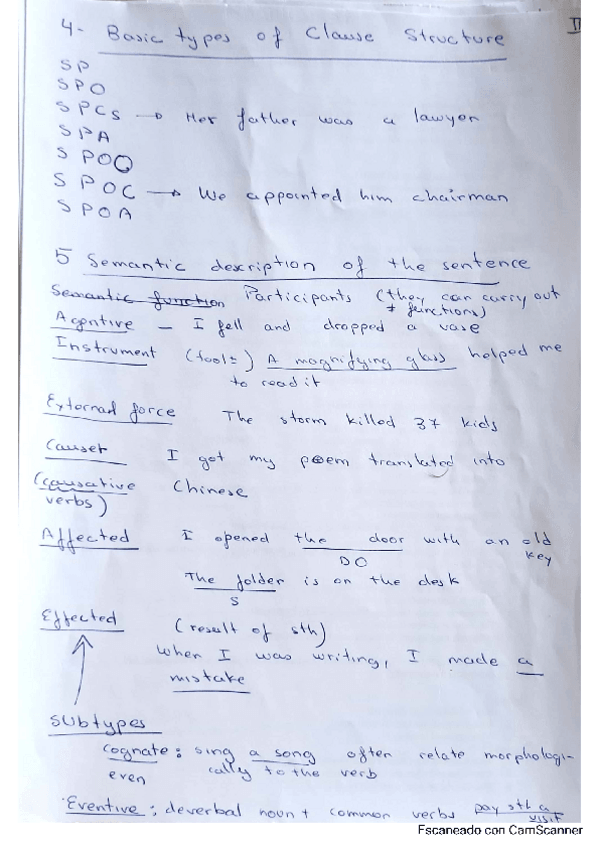 4- Basic types of Clause Structure
II
SP
SPO
SPCs → Her father was a lawyer
SPA
SPOO
SPOC → We appointed him chairman
SPOA
5 Semantic description of the sentence
Semantic function Participants (they can carry out
≠ functions)
Agentive - I fell and dropped a vase
Instrument (tools) A magnifying glass helped me
to read it
External force The storm killed 37 kids
Causer I got my poem translated into
(causative Chinese
verbs)
Affected I opened the door with an old
key
DO
The folder is on the desk
S
Effected (result of sth)
When I was writing, I made a
mistake
Subtypes
Cognate: sing a song often relate morphologi-
even cally to the verb
Eventive: deverbal noun + common verbs pay sth a
visit
Escaneado con CamScanner